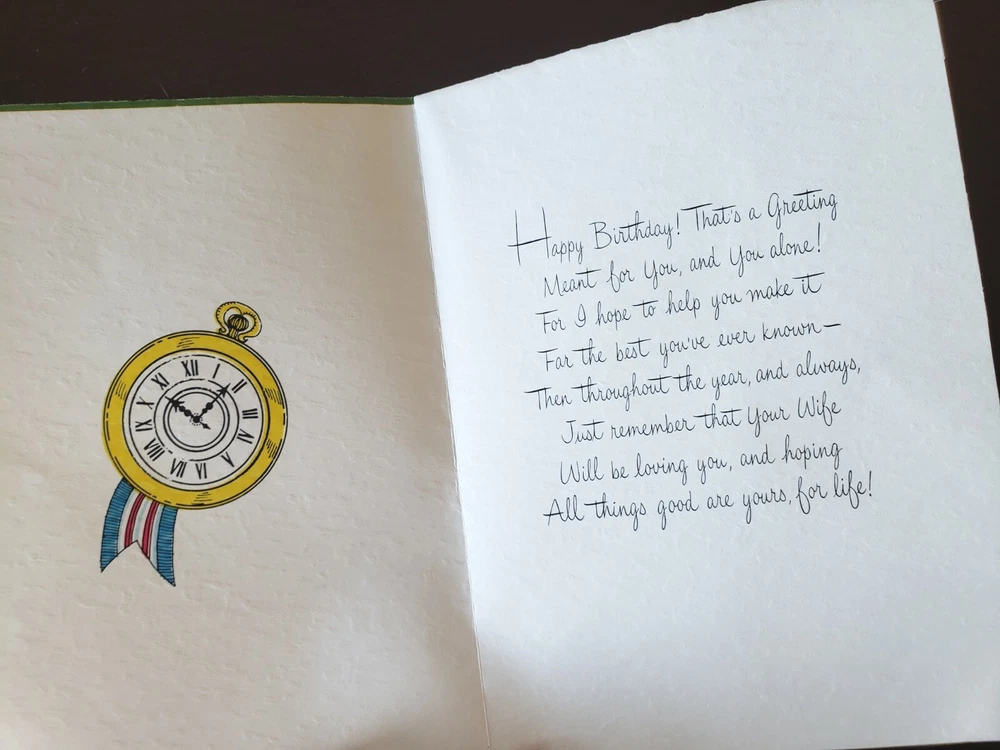 XII
I
II
III
IV
V
VI
VII
VIII
IX
X
XI
Happy Birthday! That's a Greeting
Meant for You, and You alone!
For I hope to help you make it
Far the best you've ever known—
Then throughout the year, and always,
Just remember that Your Wife
Will be loving you, and hoping
All things good are yours, for life!